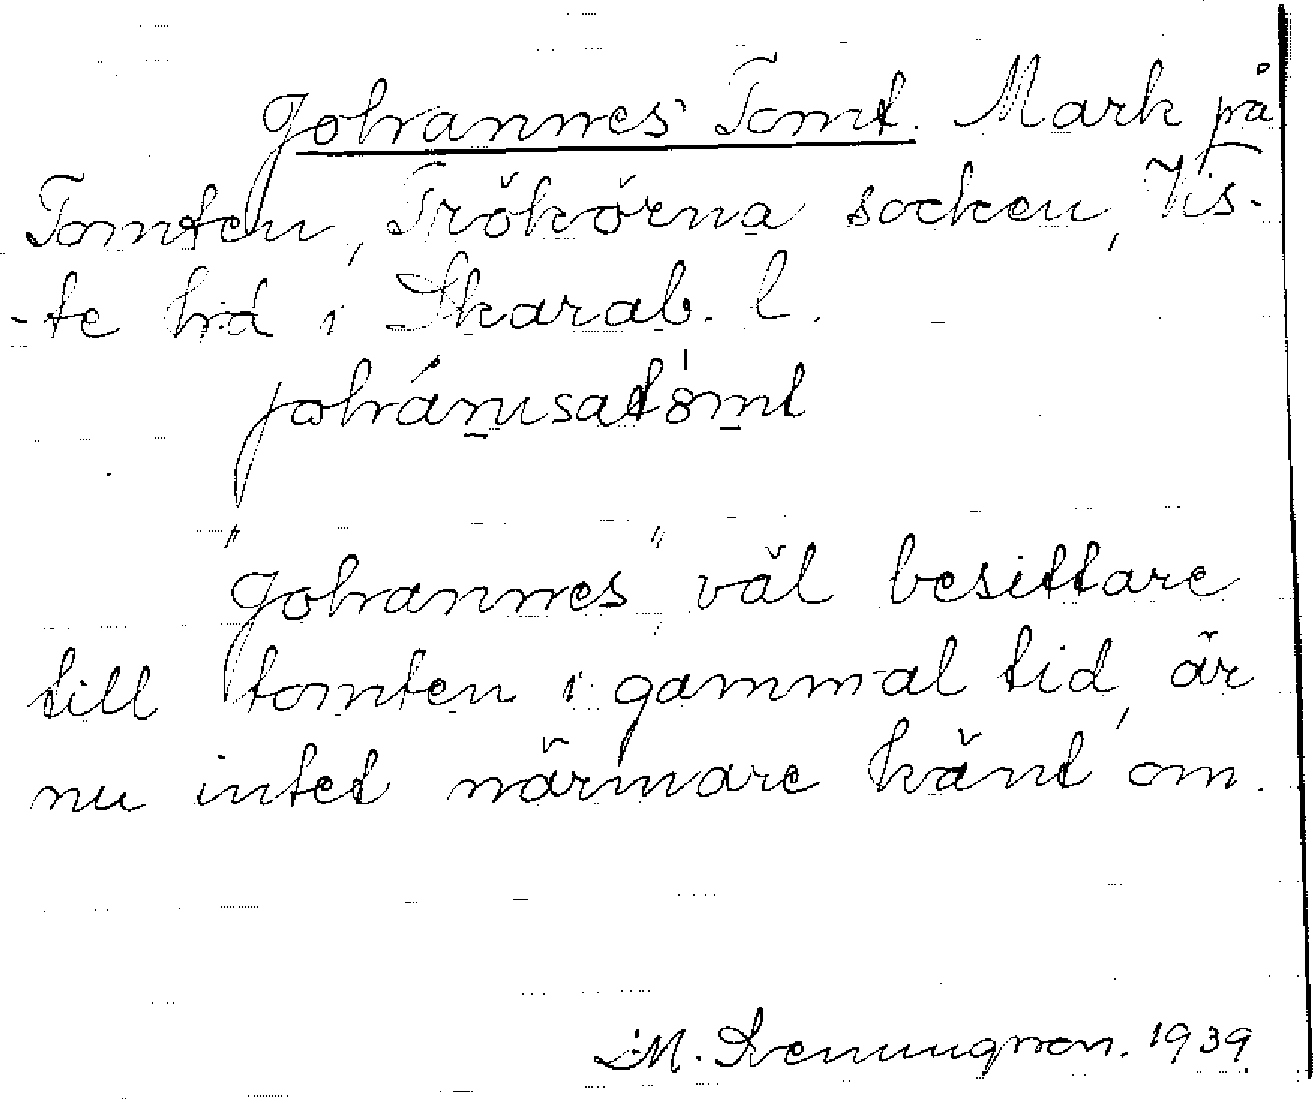 Johannes' Tomt. Mark på
Tomten, Trökörna socken, Vis-
-te hd i Skarab. l.
johánụsatómt
"Johannes", väl besittare
till tomten i gammal tid, är
nu intet närmare känt om.
M. 1939